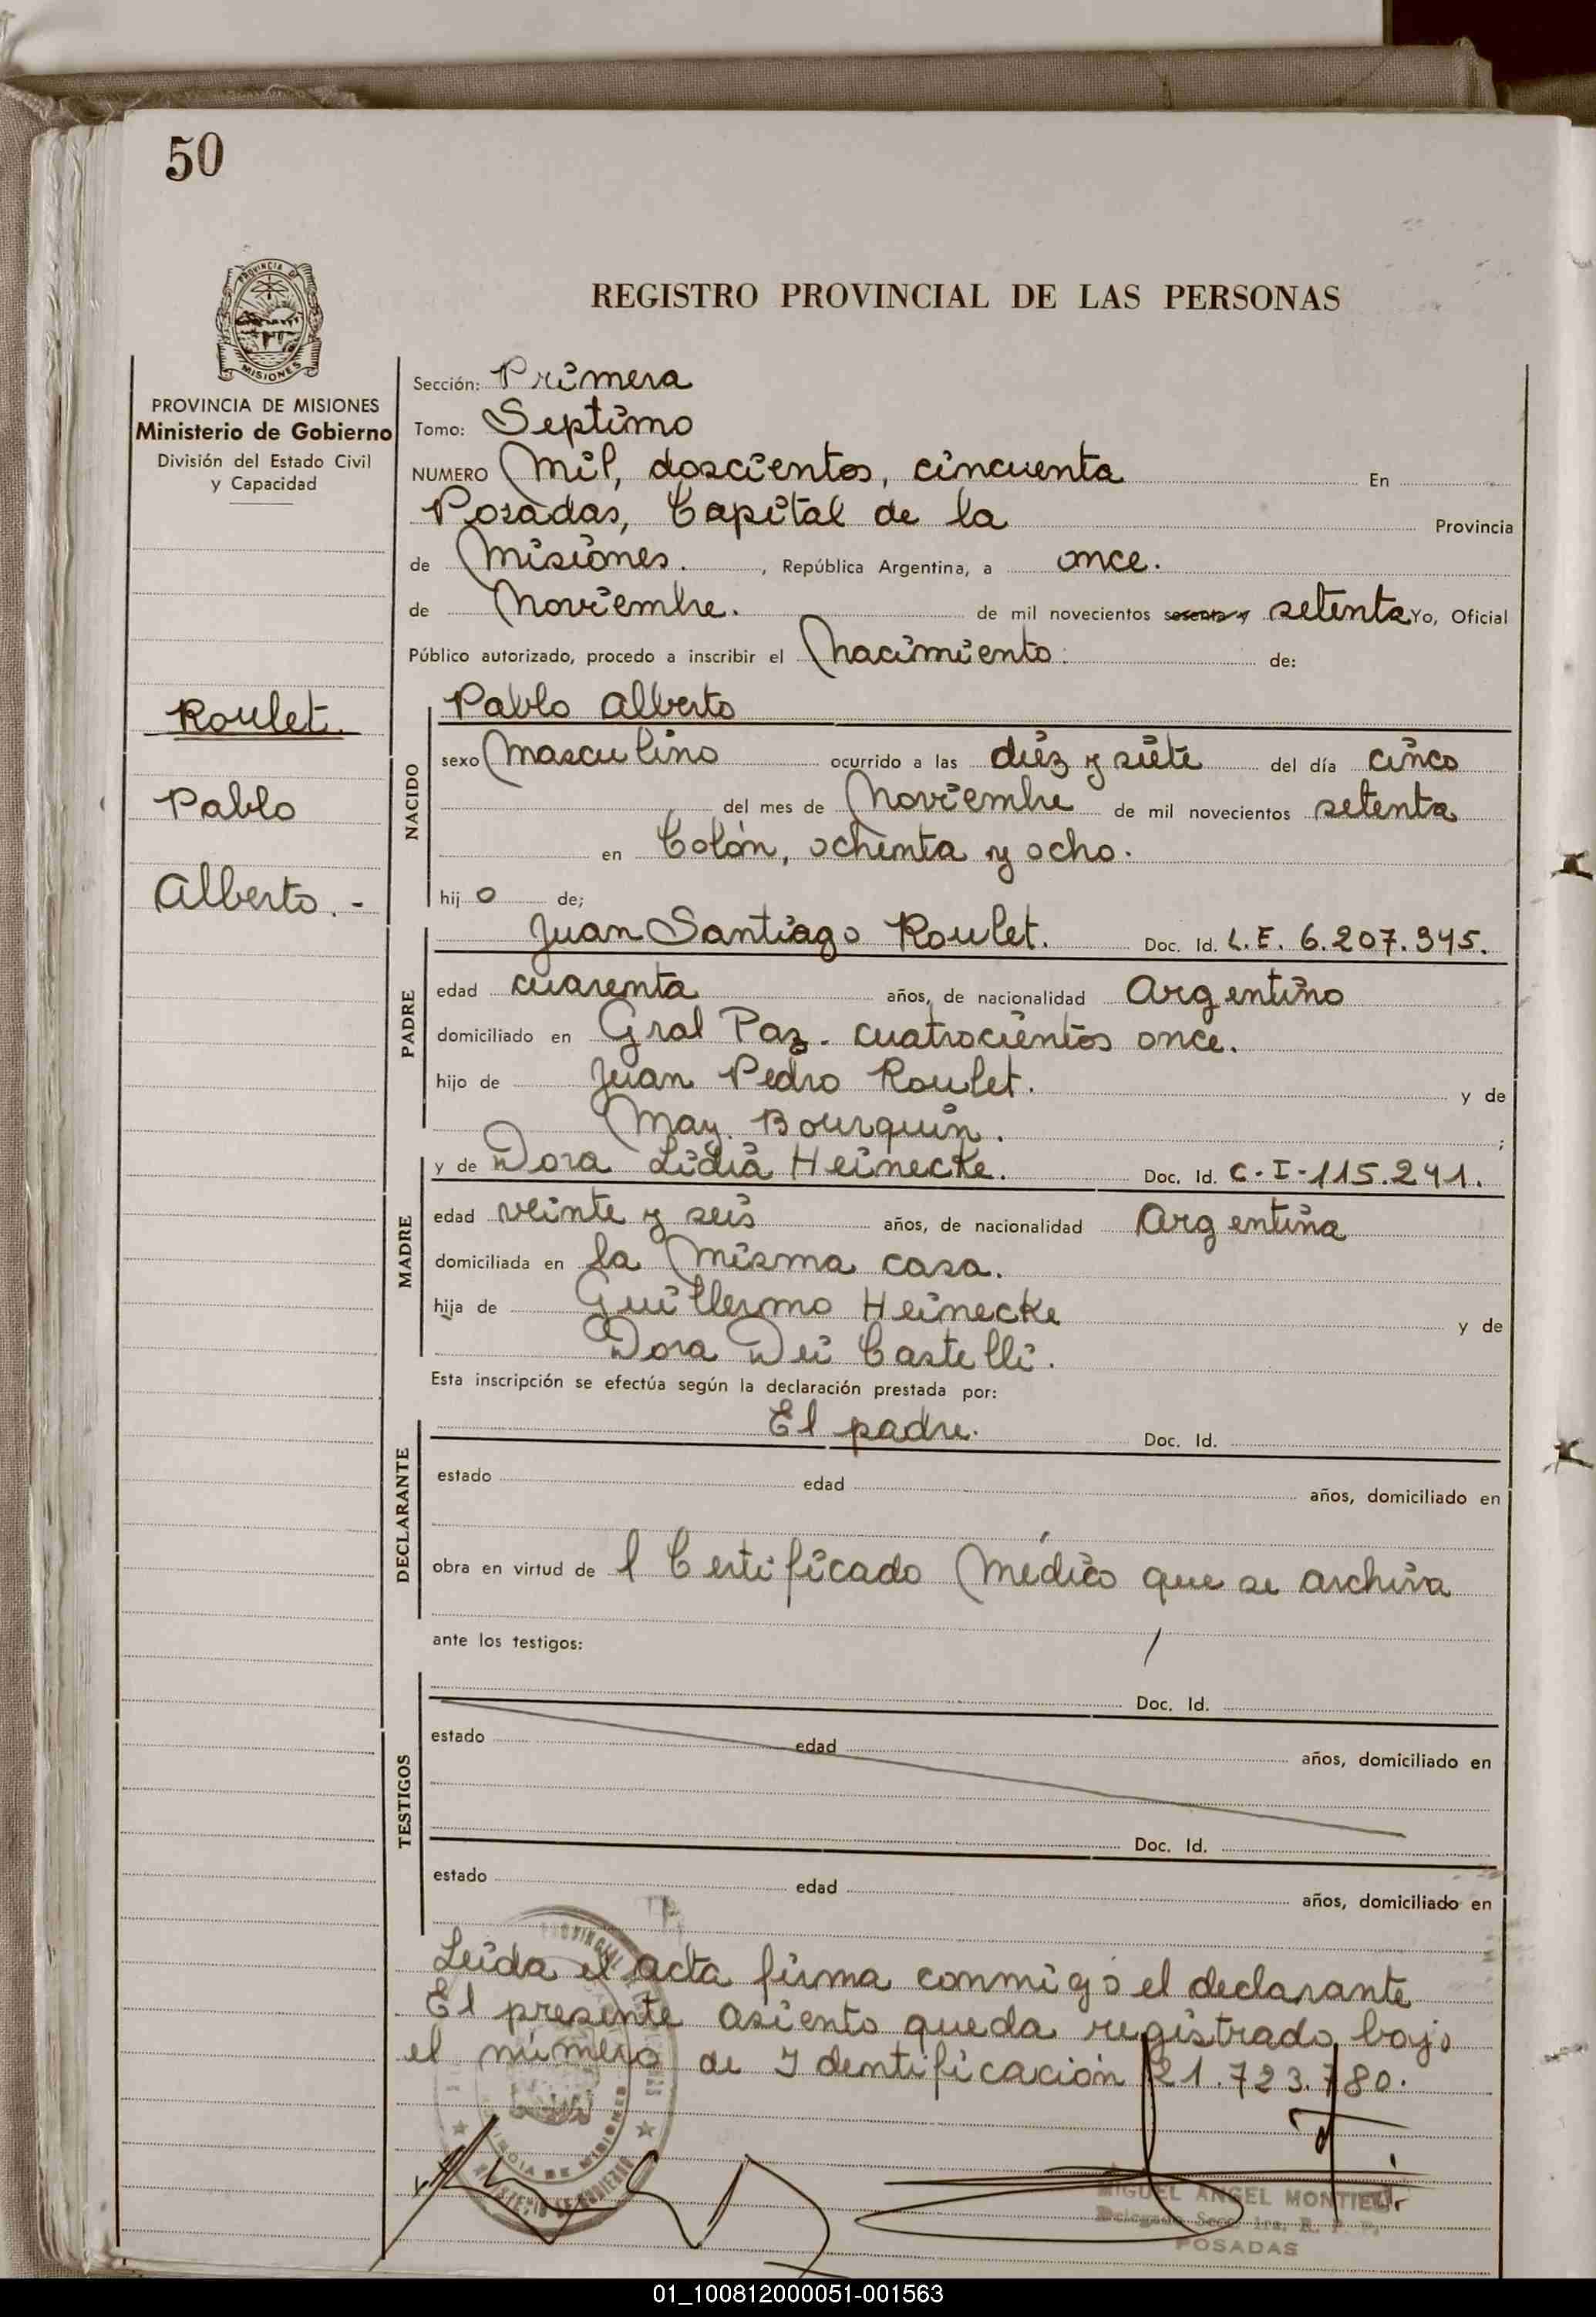 50
PROVINCIA DE
MISIONES
REGISTRO PROVINCIAL DE LAS PERSONAS
PROVINCIA DE MISIONES
Ministerio de Gobierno
División del Estado Civil
y Capacidad
Roulet.
Pablo
Alberto.-
Sección: Primera
Tomo: Septimo
NUMERO Mil, doscientos, cincuenta En
Posadas, Capital de la Provincia
de Misiones. , República Argentina, a once.
de Noviembre. de mil novecientos sesenta y setenta Yo, Oficial
Público autorizado, procedo a inscribir el Nacimiento. de:
NACIDO
Pablo Alberto
sexo Masculino ocurrido a las diéz y siete del día cinco
del mes de Noviembre de mil novecientos setenta
en Colón, ochenta y ocho.
hij o de;
PADRE
Juan Santiago Roulet. Doc. Id. L.E. 6.207.345.
edad cuarenta años, de nacionalidad Argentino
domiciliado en Gral Paz. cuatrocientos once.
hijo de Juan Pedro Roulet. y de
May. Bourquin. ;
MADRE
y de Dora Lidia Heinecke. Doc. Id. C-I-115.241.
edad veinte y seis años, de nacionalidad Argentina
domiciliada en la misma casa.
hija de Guillermo Heinecke y de
Dora Dei Castelli.
Esta inscripción se efectúa según la declaración prestada por:
DECLARANTE
El padre. Doc. Id.
estado edad años, domiciliado en
obra en virtud de l Certificado Médico que se archiva
ante los testigos:
TESTIGOS
Doc. Id.
estado edad años, domiciliado en
Doc. Id.
estado edad años, domiciliado en
Leida el acta firma conmigo el declarante
El presente asiento queda registrado bajo
el número de Identificación 21.723.780.
MIGUEL ANGEL MONTIEL
Delegado Secc. 1ra. R. P. P.
POSADAS
01_100812000051-001563